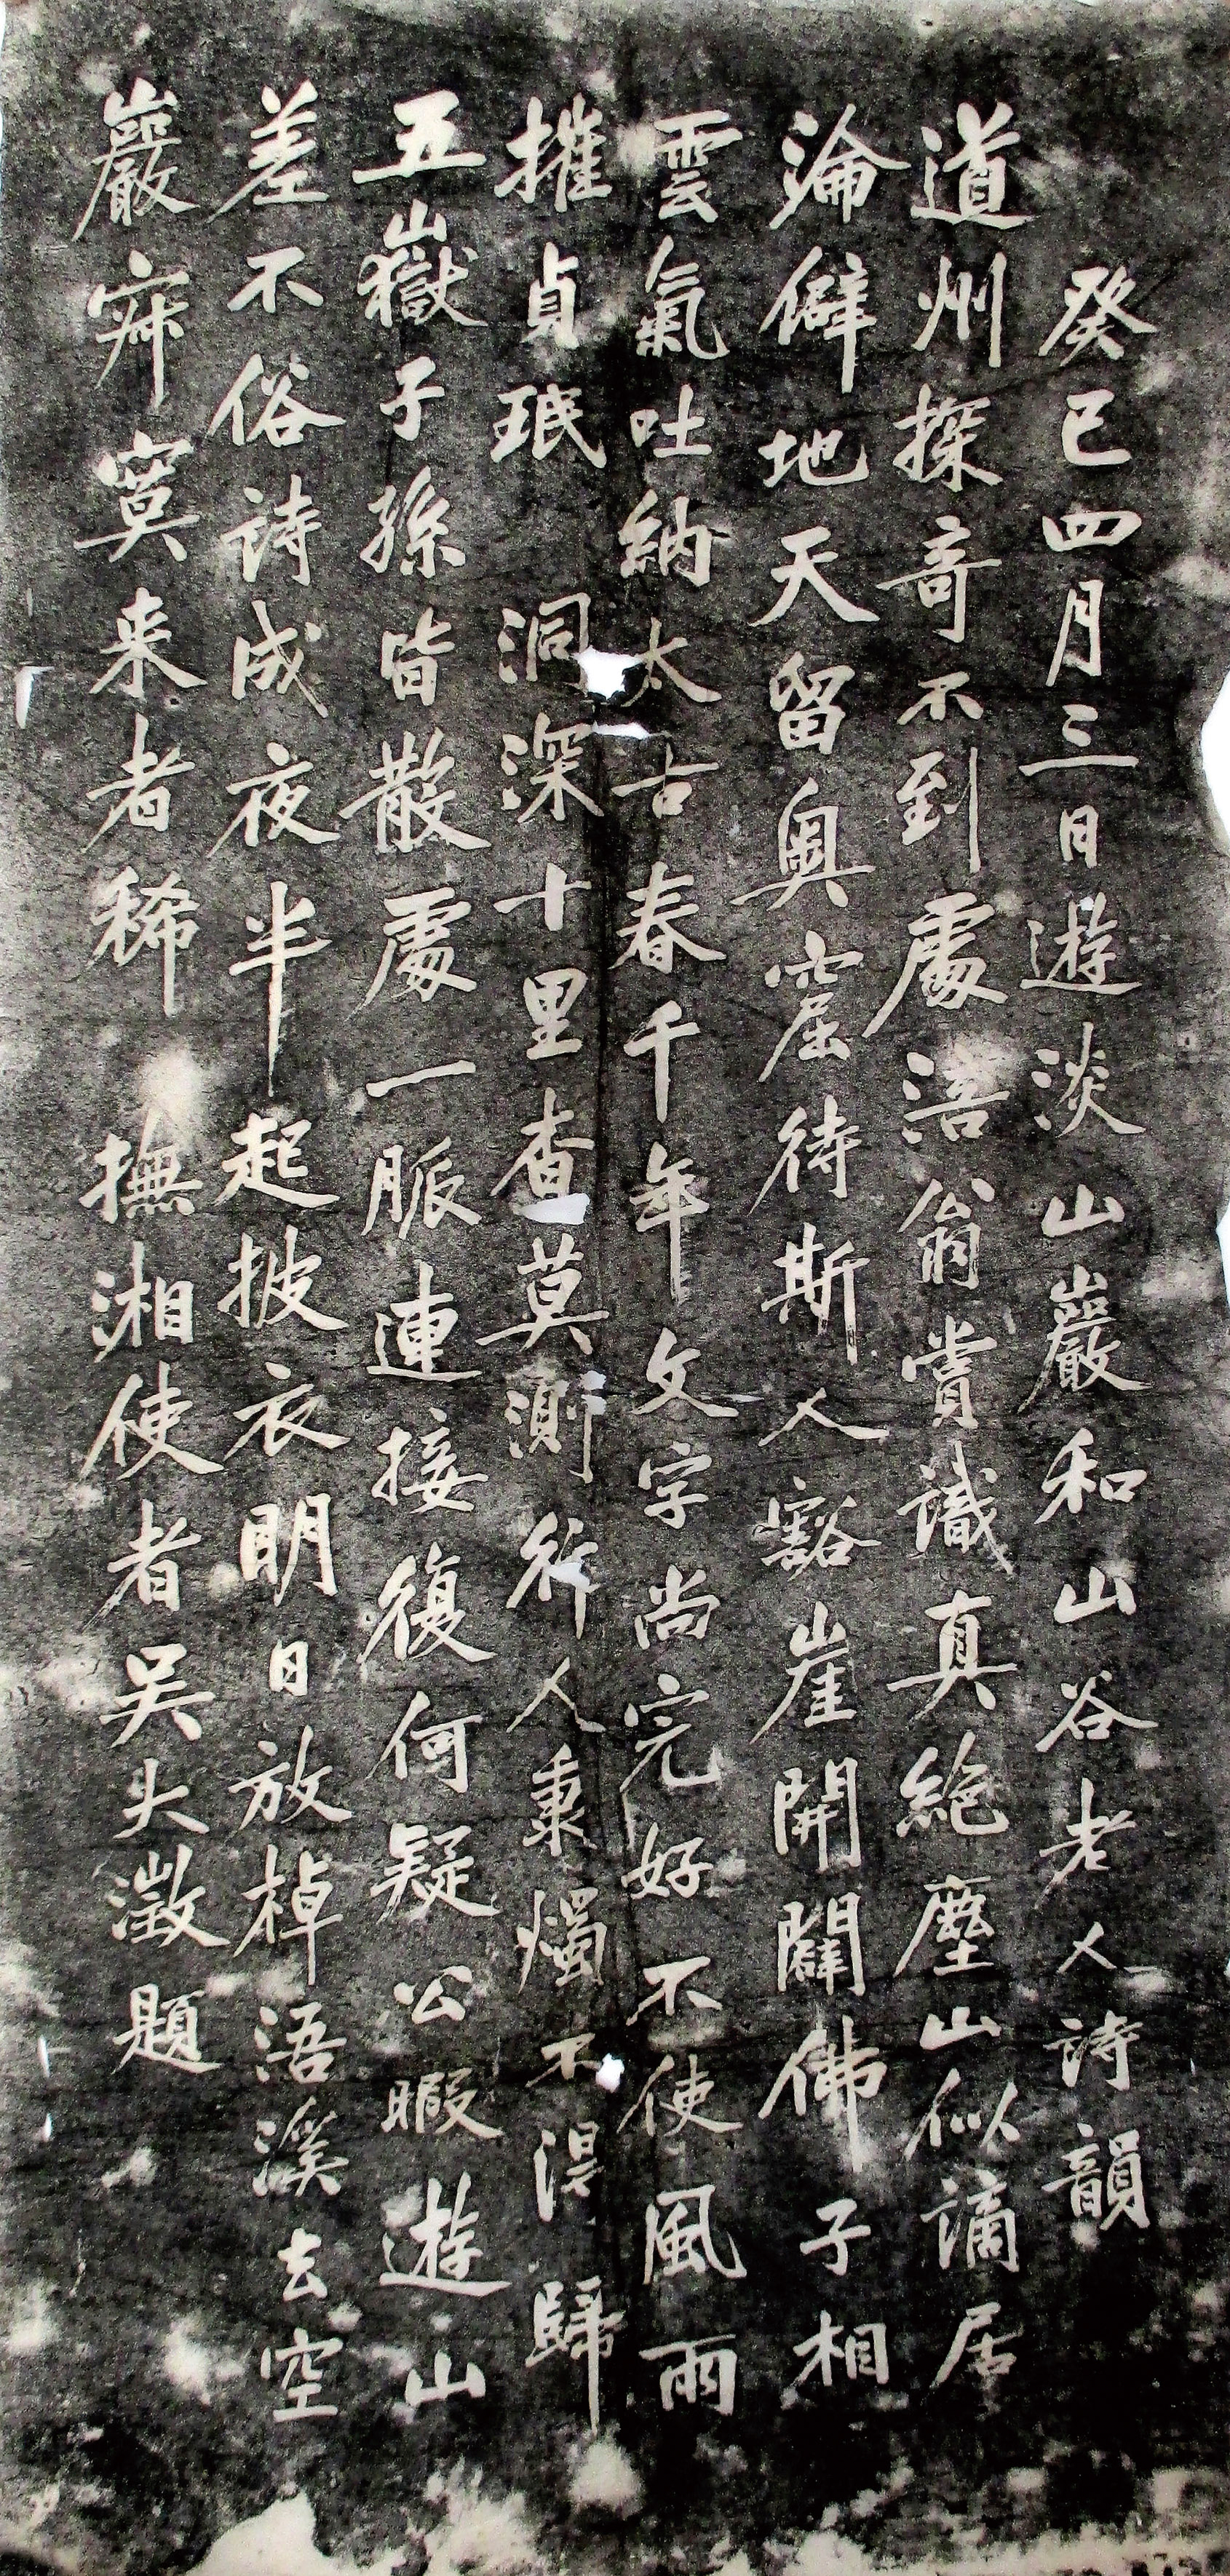 癸巳四月三日遊淡山巖和山谷老人詩韻
道州探奇不到處浯翁賞識真絕塵山似謫居
淪僻地天留奧窟待斯人豁崖開闢佛子相
雲氣吐納太古春千年文字尚完好不使風雨
摧貞珉洞深十里杳莫測行人秉燭不得歸
五嶽子孫皆散處一脈連接復何疑公暇遊山
差不俗詩成夜半起披衣明日放棹浯溪去空
巖寂寞来者稀撫湘使者吴大澂題